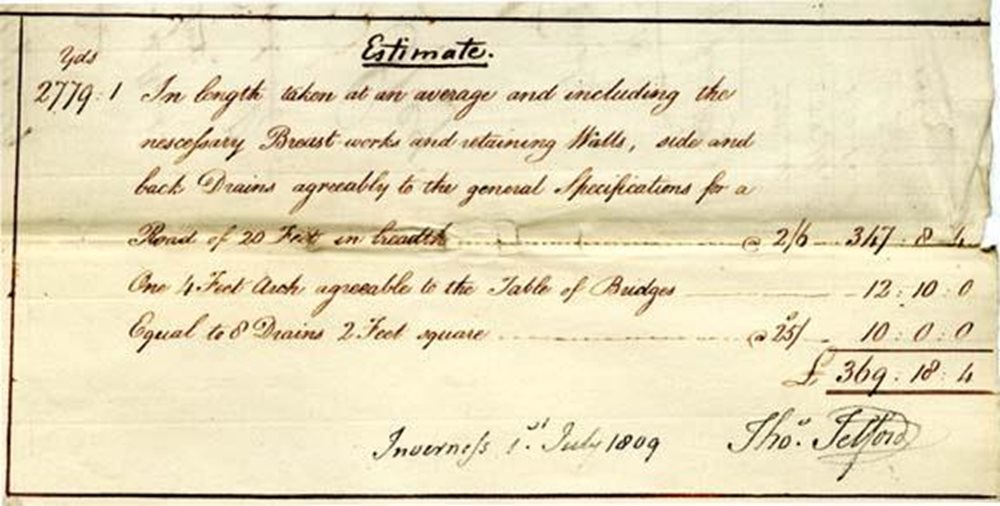 Estimate.
Yds
2779 : 1 In length taken at an average and including the
nesceſsary Breast-works and retaining Walls, side and
back Drains agreeably to the general Specifications for a
Road of 20 Feet in breadth @ 2/6 347 : 8 : 4
One 4 Feet Arch agreeable to the Table of Bridges 12 : 10 : 0
Equal to 8 Drains 2 Feet square @ 25/ 10 : 0 : 0
£ 369 : 18 : 4
Inverneſs 1st July 1809 Thos. Telford